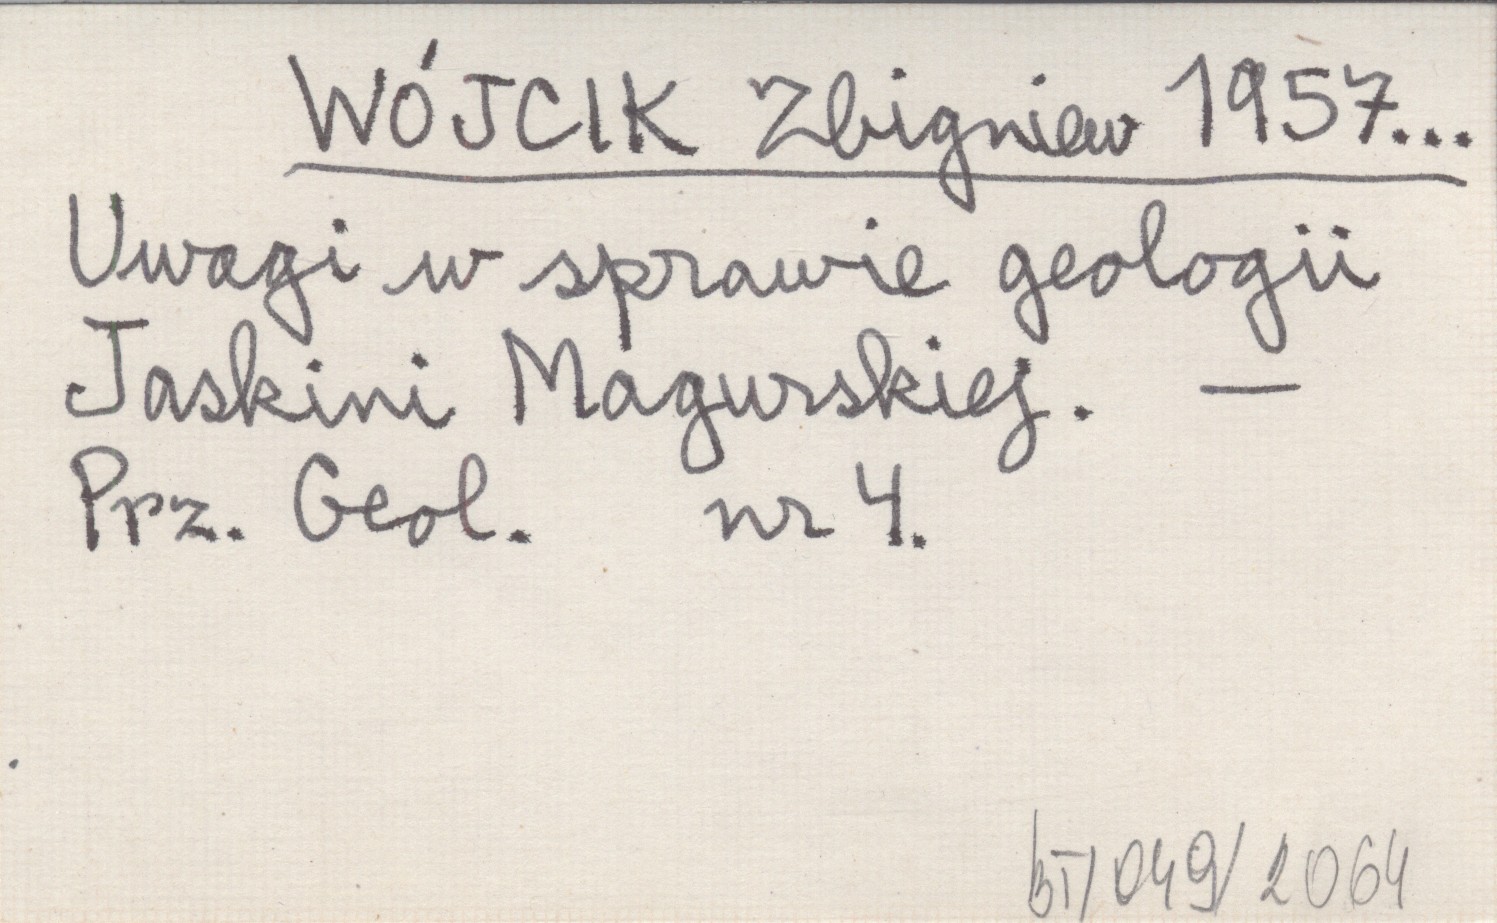 WÓJCIK Zbigniew 1957...
Uwagi w sprawie geologii
Jaskini Magurskiej. —
Prz. Geol. nr 4.
BT/049/2064